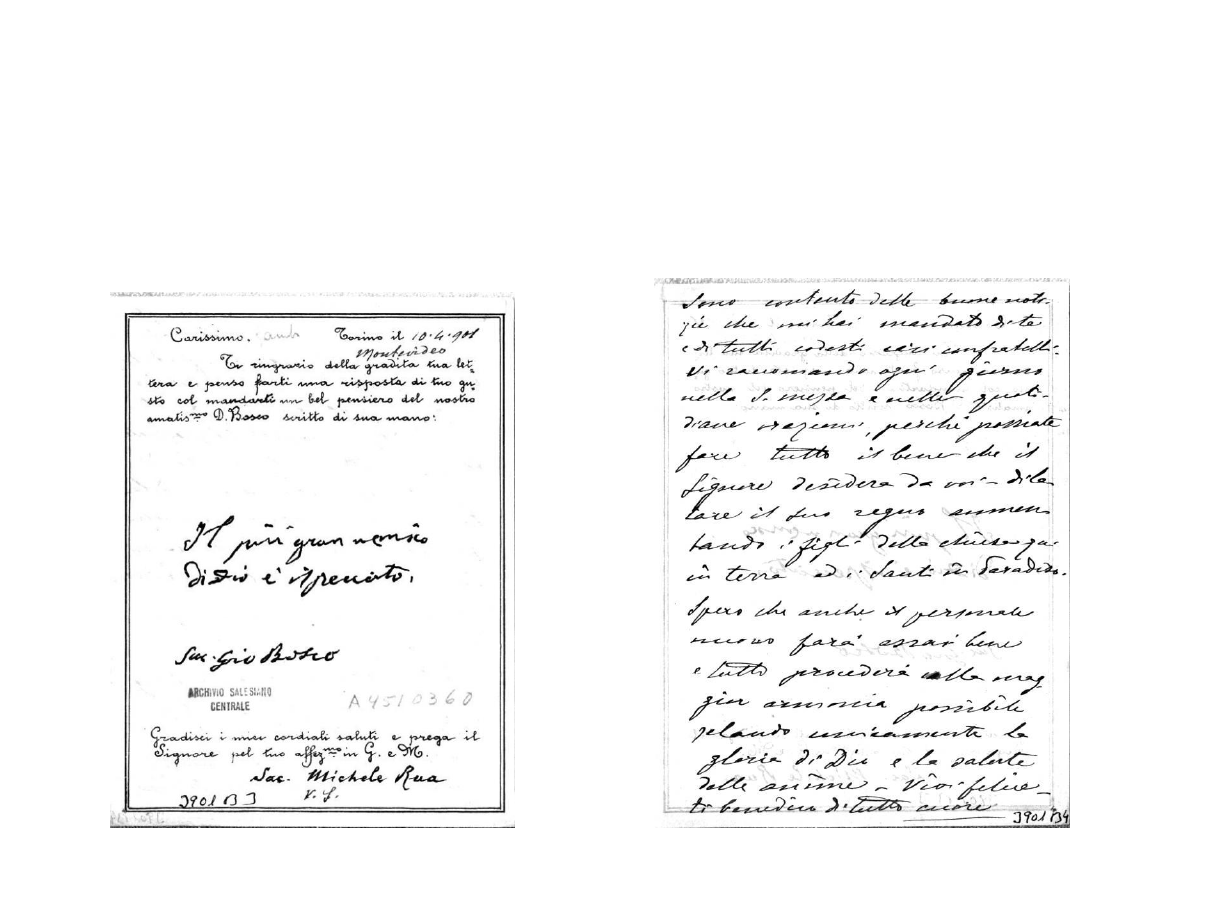 Carissimo, Torino il 10·4·901
Montevideo
Ti ringrazio della gradita tua let-
tera e penso farti una risposta di tuo gu-
sto col mandarti un bel pensiero del nostro
amatis.mo D. Bosco scritto di sua mano:
Il più gran nemico
di Dio è il peccato.
Sac. Gio Bosco
ARCHIVIO SALESIANO
CENTRALE
A4510360
Gradisci i miei cordiali saluti e prega il
Signore pel tuo affez.mo in G. e M.
Sac. Michele Rua
3901 B 3
Sono contento delle buone noti-
zie che mi hai mandato di te
e di tutti codesti cari confratelli.
Vi raccomando ogni giorno
nella S. messa e nelle quoti-
diane orazioni, perché possiate
fare tutto il bene che il
Signore desidera da voi - dila
tare il suo regno aumen
tando i figli della chiesa qui
in terra ed i Santi in Paradiso.
Spero che anche il personale
nuovo farà assai bene
e tutto procederà colla mag
gior armonia possibile
zelando unicamente la
gloria di Dio e la salute
delle anime - Vivi felice -
ti benedico di tutto cuore
3901 B4